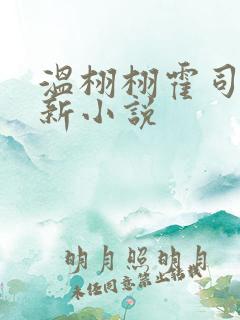 温栩栩霍司
新小说
明月照明月
未经同意禁止转载